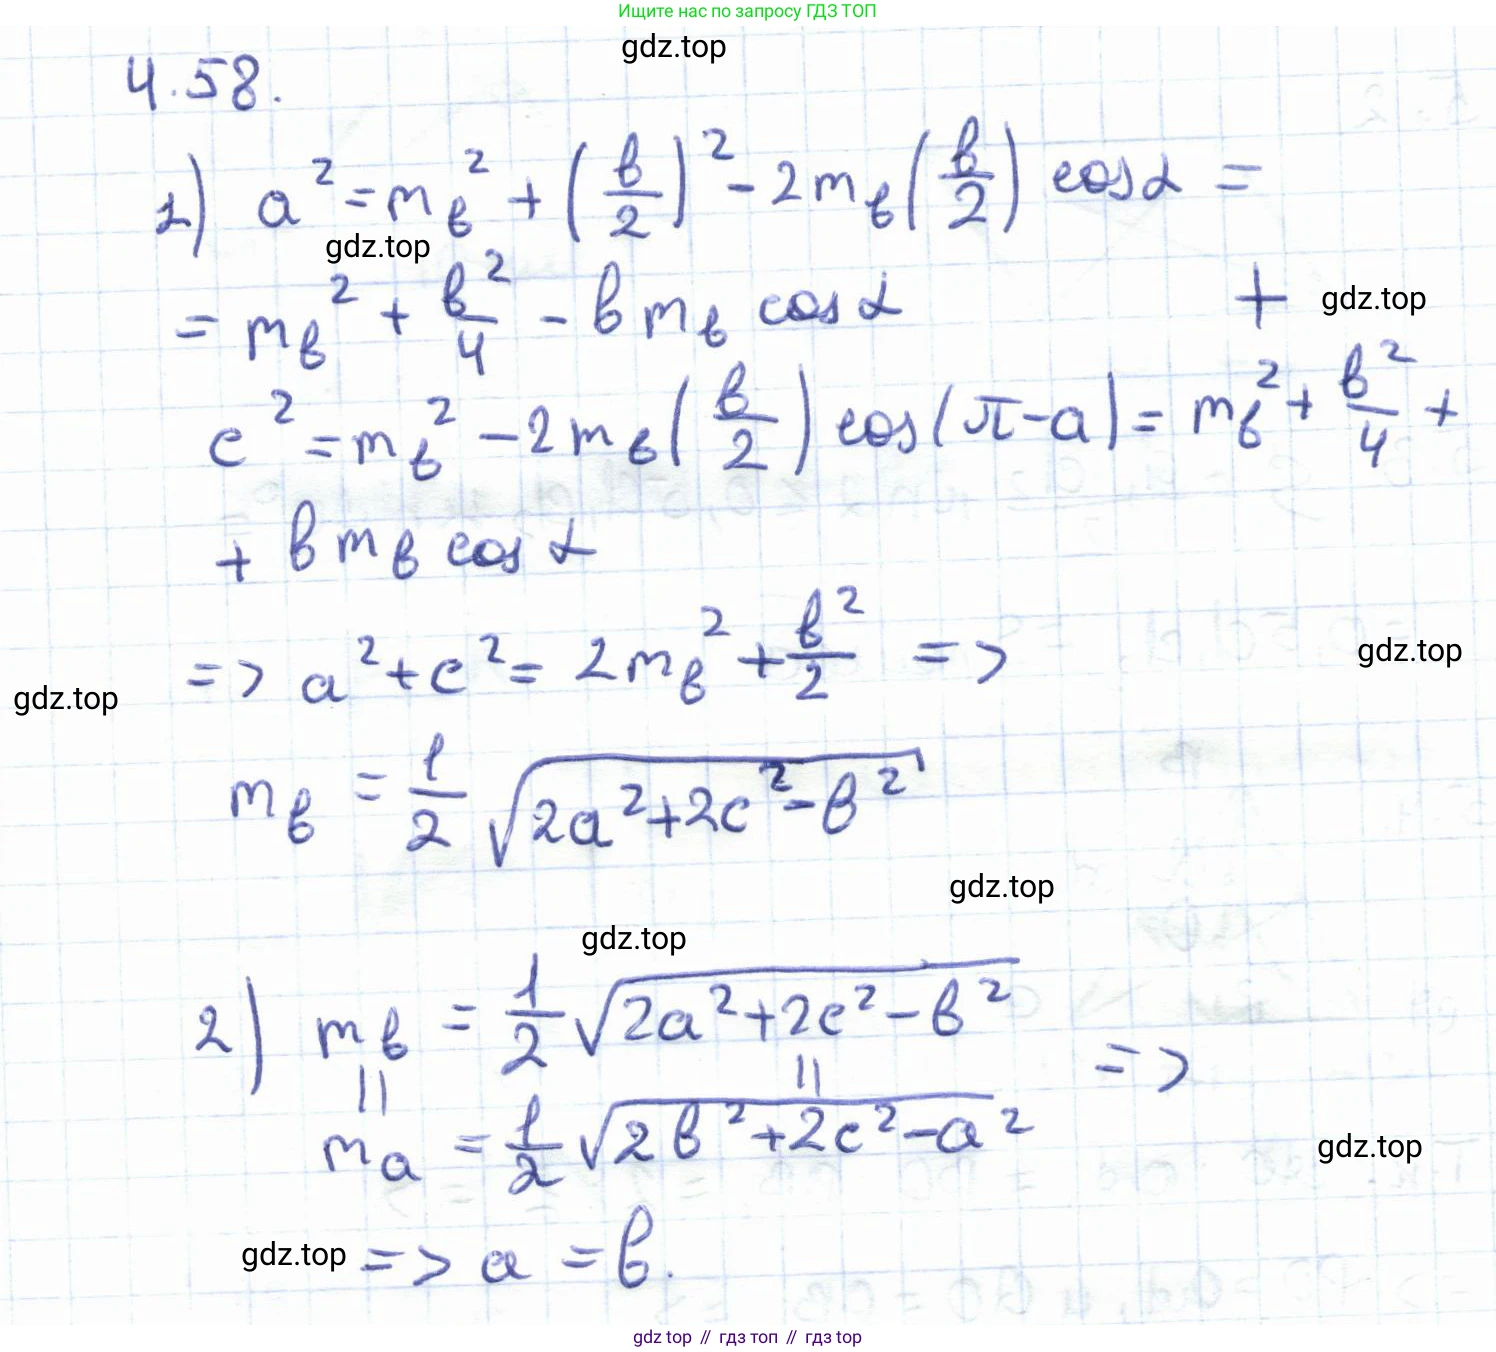 Ищите нас по запросу ГДЗ ТОП
gdz.top
4.58.
1) a² = m_в² + (в/2)² - 2m_в(в/2) cosα =
gdz.top
= m_в² + в²/4 - в m_в cosα
+ gdz.top
c² = m_в² - 2m_в(в/2) cos(π-a) = m_в² + в²/4 +
+ в m_в cosα
=> a² + c² = 2m_в² + в²/2 =>
gdz.top
gdz.top
m_в = 1/2 √(2a²+2c²-в²)
gdz.top
gdz.top
2) m_в = 1/2 √(2a²+2c²-в²)
|| || =>
m_a = 1/2 √(2в²+2c²-a²)
gdz.top
gdz.top => a = в.
gdz top // гдз топ // гдз top